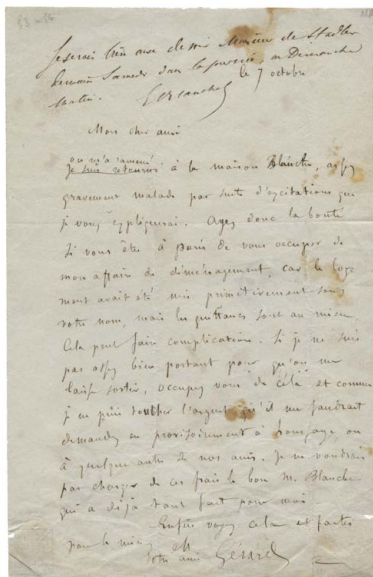 Je serais bien aise de voir Monsieur de Stadler
demain Samedi dans la journée, ou Dimanche
matin.
le 7 octobre
Mon cher ami
on m'a ramené
je suis retourné à la maison Blanche, assez
gravement malade par suite d'excitations que
je vous expliquerai. Ayez donc la bonté
si vous êtes à Paris de vous occuper de
mon affaire de déménagement, car le loge
ment avait été mis primitivement sous
votre nom, mais les quittances sont au mien.
Cela peut faire complication. Si je ne suis
pas assez bien portant pour qu'on me
laisse sortir, occupez vous de cela et comme
je n'en puis toucher l'argent qu'il me faudrait
demandez en provisoirement à ou
à quelque autre de nos amis. Je ne voudrais
pas charger de ces frais le bon M. Blanche
qui a déjà tant fait pour moi
Enfin voyez cela et faites
pour le mieux
Votre ami Gérard